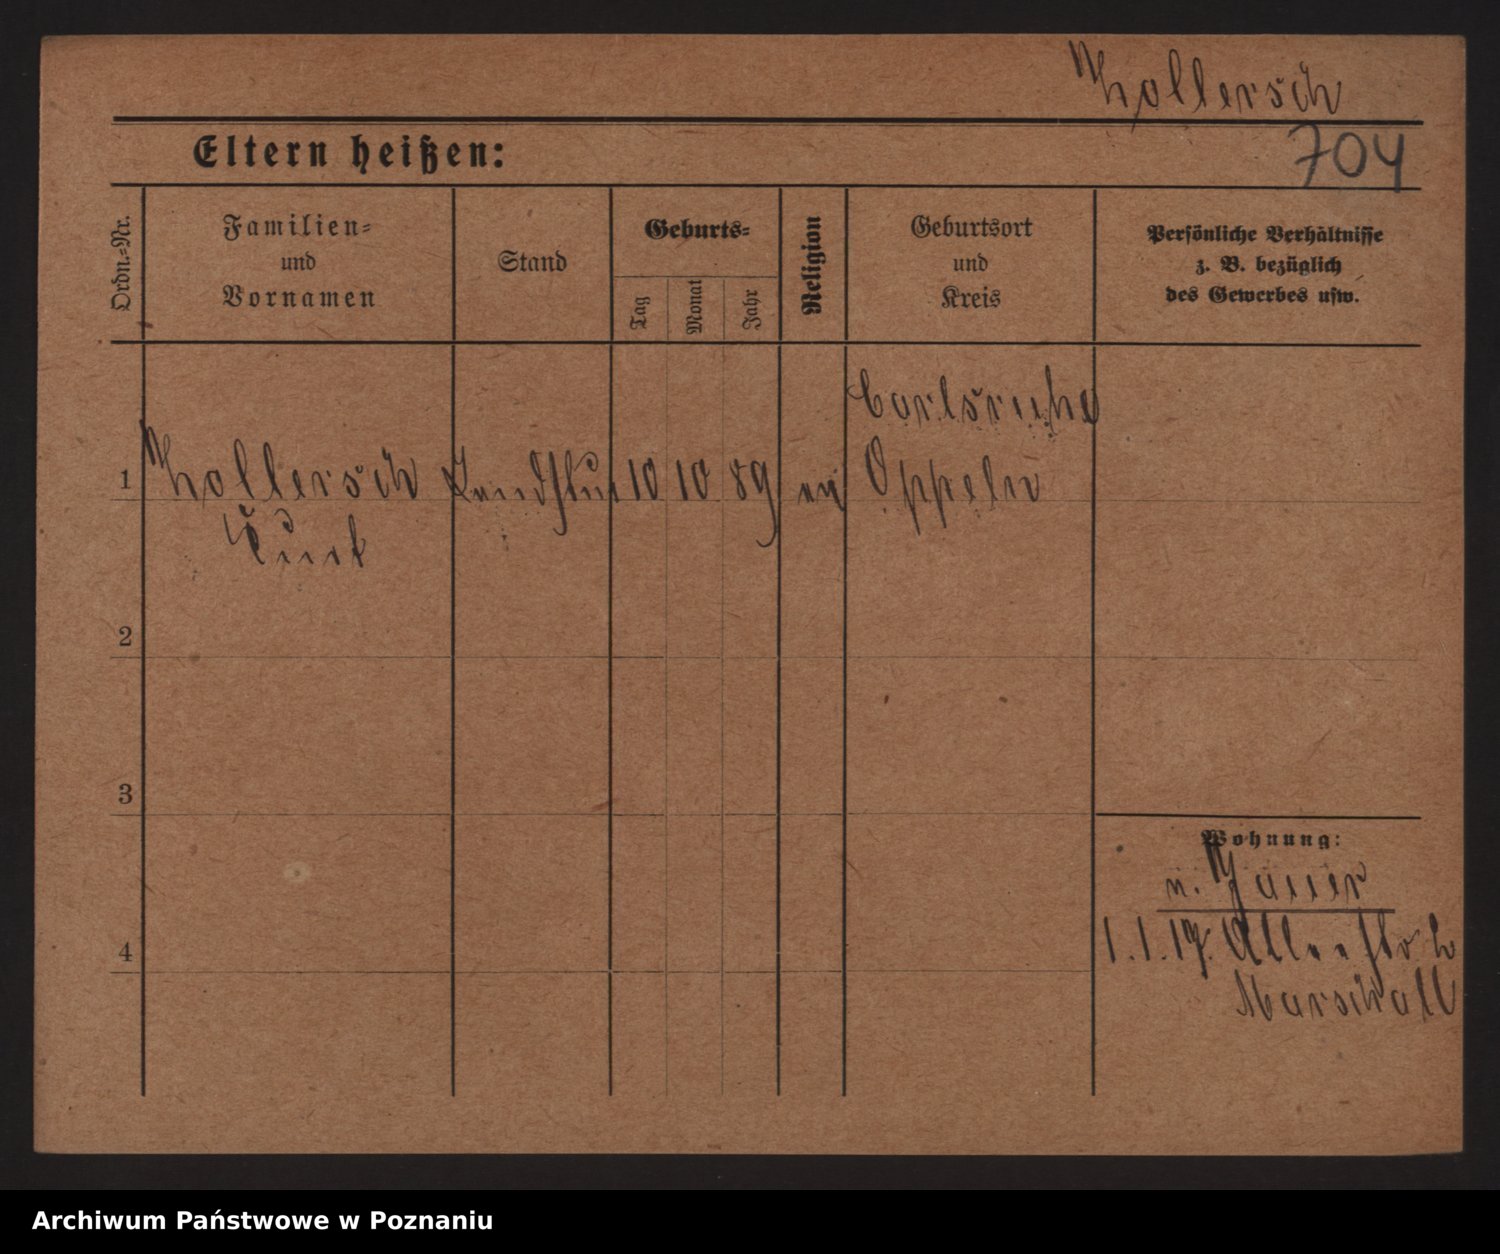 Kollersch
704
Eltern heißen:
Ordn.-Nr.
Familien-
und
Vornamen
Stand
Geburts-
Tag
Monat
Jahr
Religion
Geburtsort
und
Kreis
Persönliche Verhältnisse
z. B. bezüglich
des Gewerbes usw.
Carlsruhe
1 Kollersch Landstur 10 10 89 ev Oppeln
Kurt
2
3
Wohnung:
n. Jauer
1.1.17.
4
Marschall
Archiwum Państwowe w Poznaniu